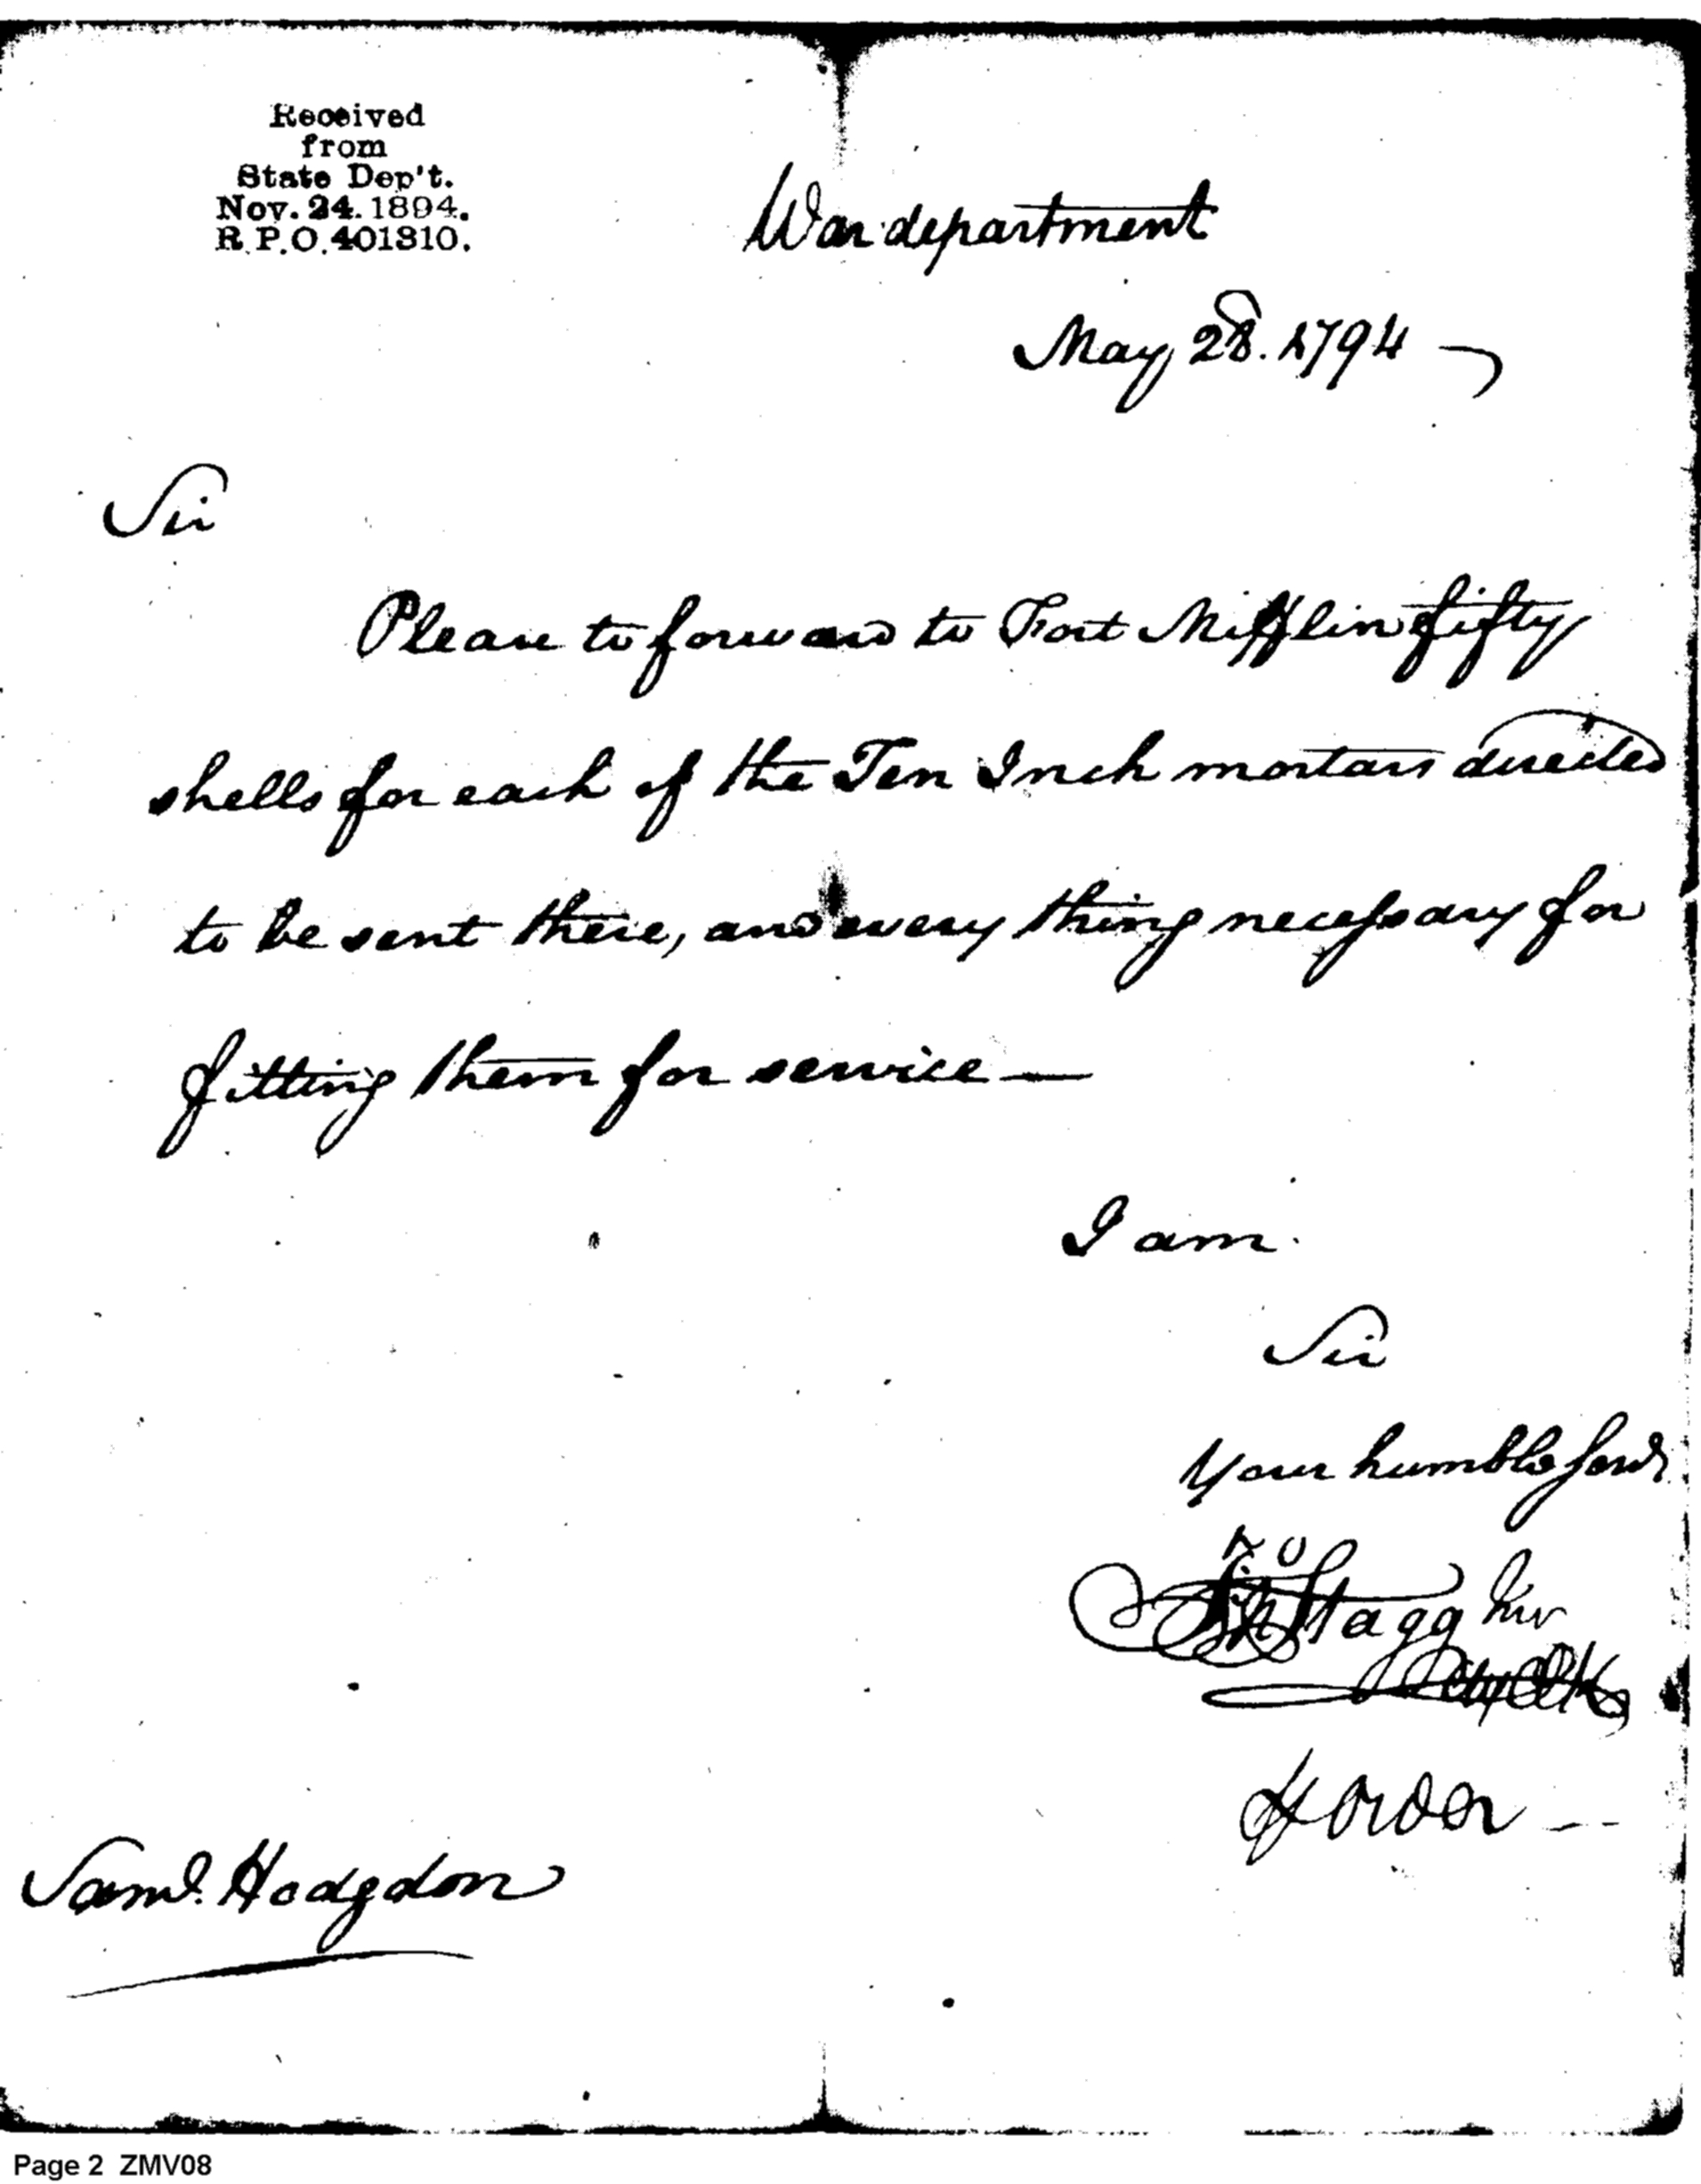 Received
from
State Dep't.
Nov. 24. 1894.
R.P.O. 401310.
War department
May 28. 1794
Sir
Please to forward to Fort Mifflin fifty
shells for each of the Ten Inch mortars directed
to be sent there, and every thing necessary for
fitting them for service —
I am
Sir
Your humble servt.
Jno Stagg Junr
Saml. Hodgdon
Page 2 ZMV08